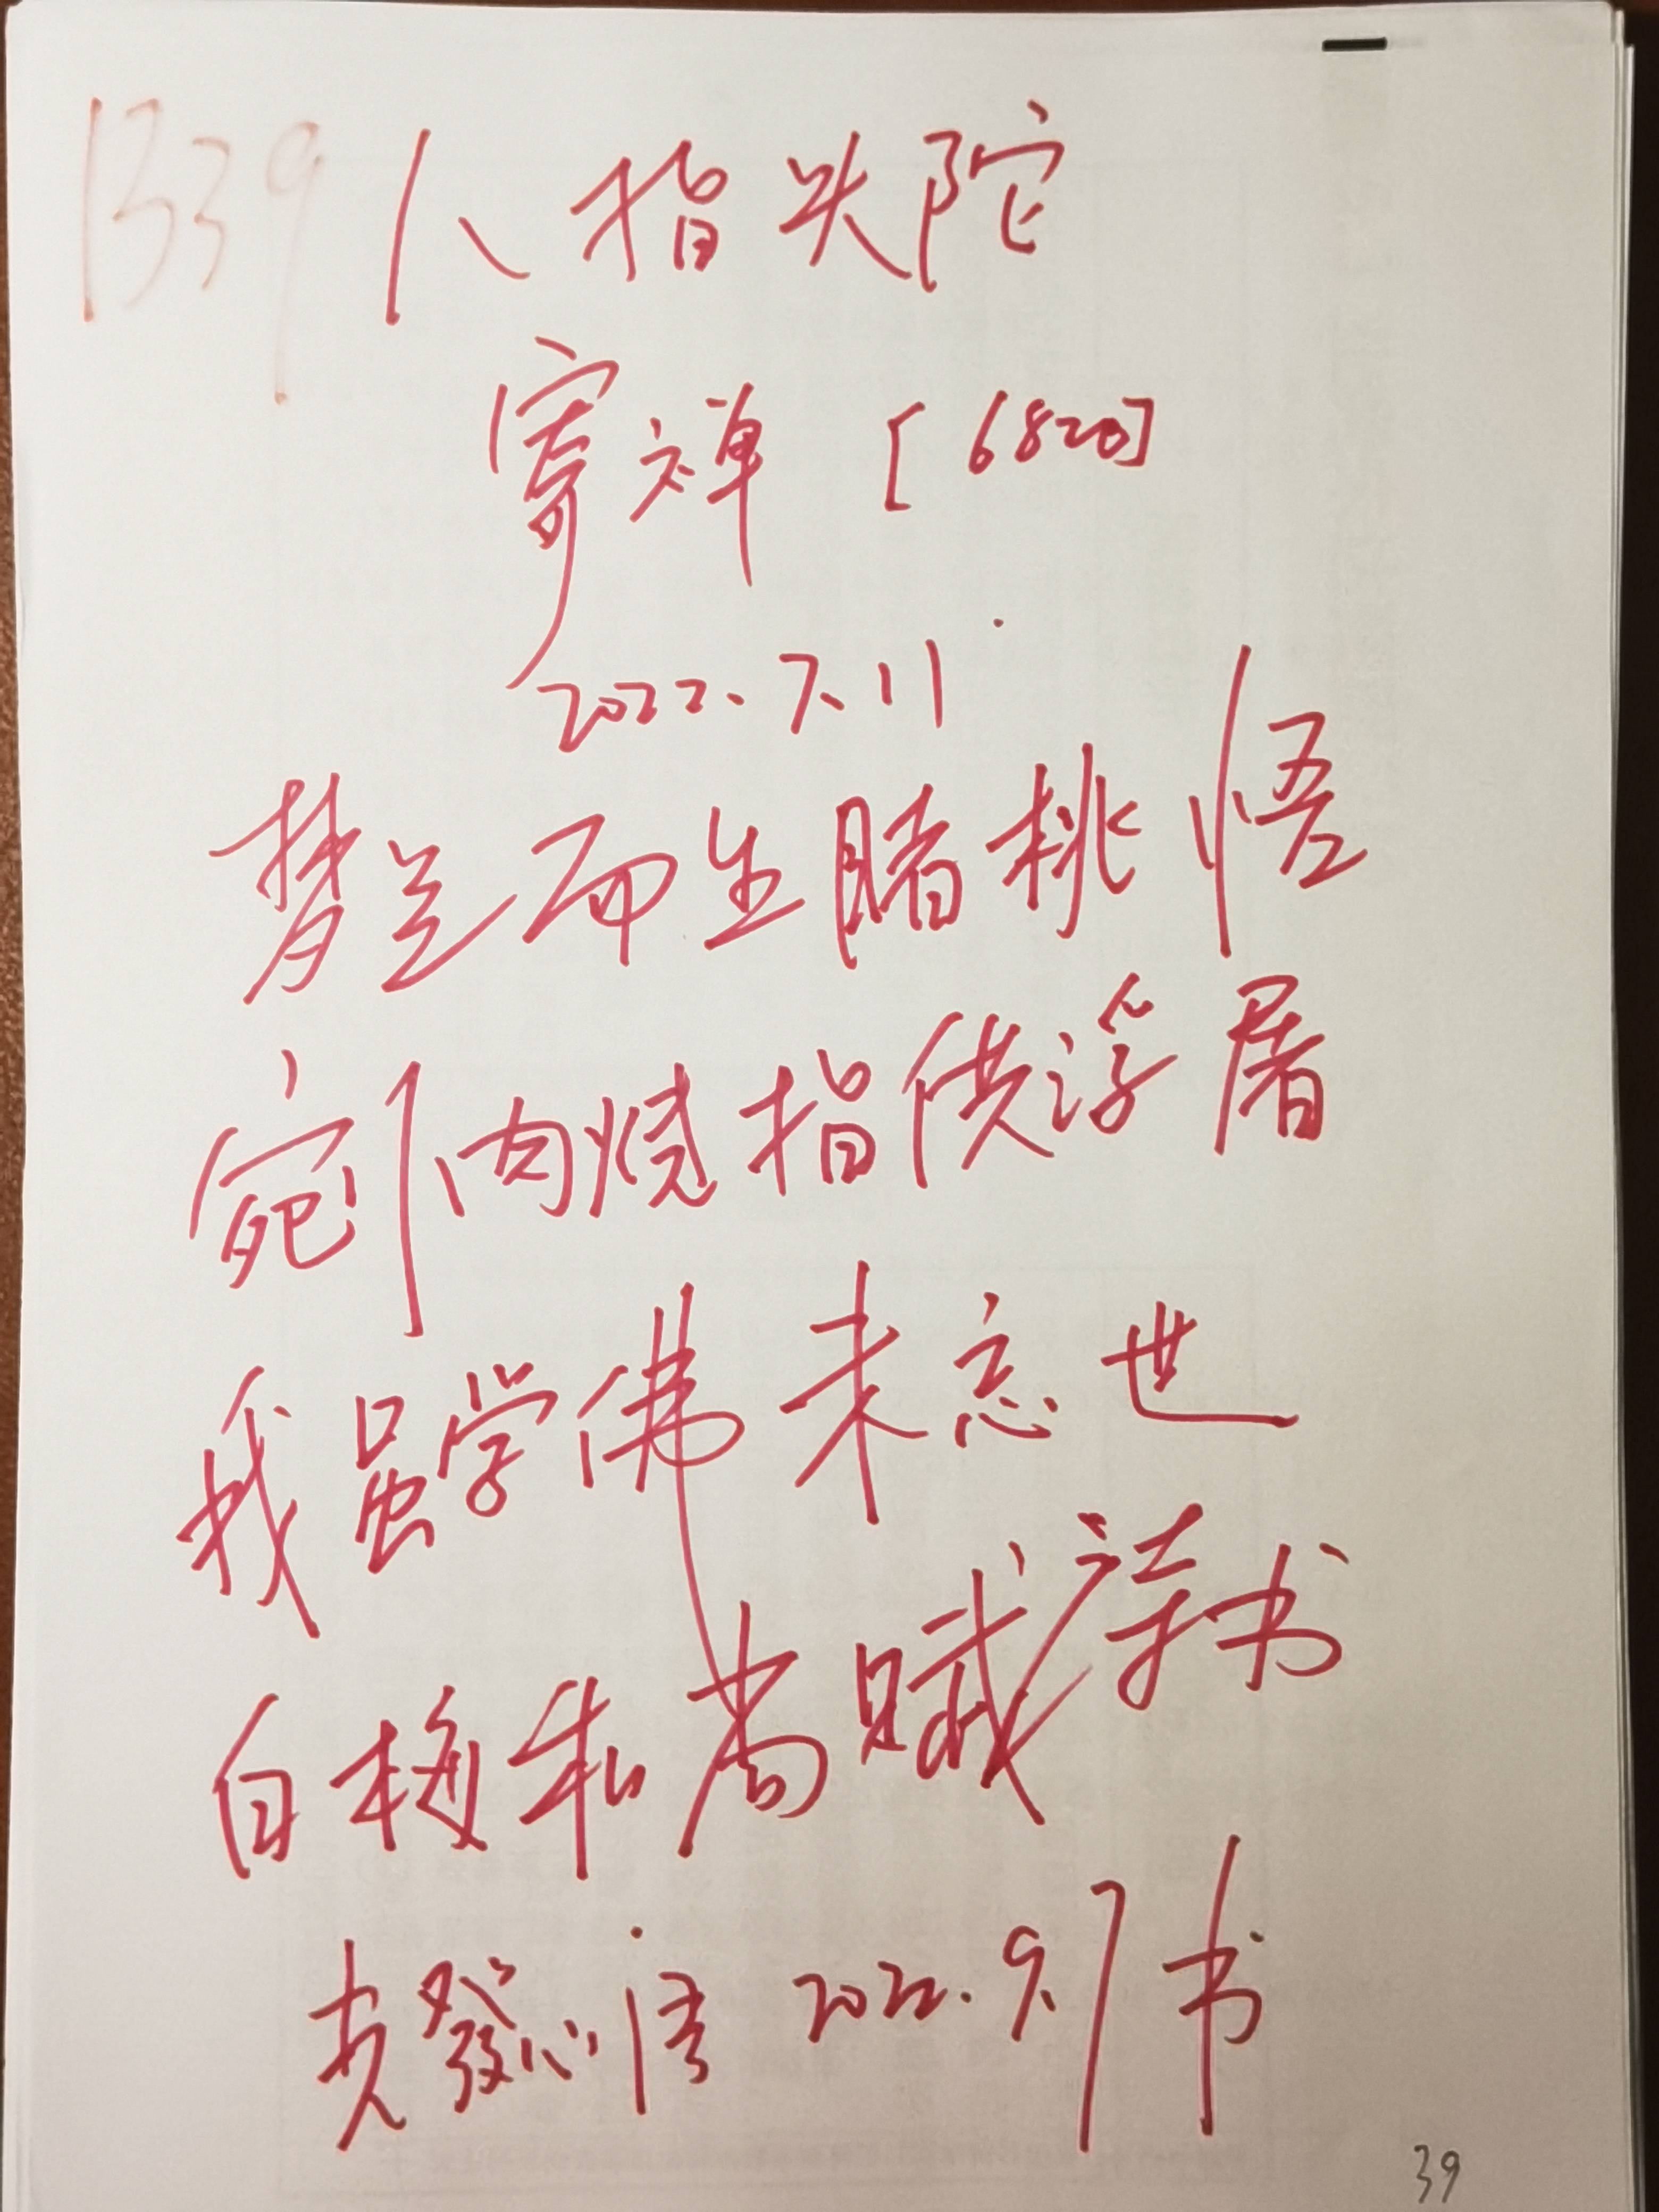 1339 八指头陀
寄禅 [6820]
2022.7.11
梦兰而生睹桃悟
宛肉烧指供浮屠
我虽学佛未忘世
白梅和尚赋诗书
2022.9.7书
39